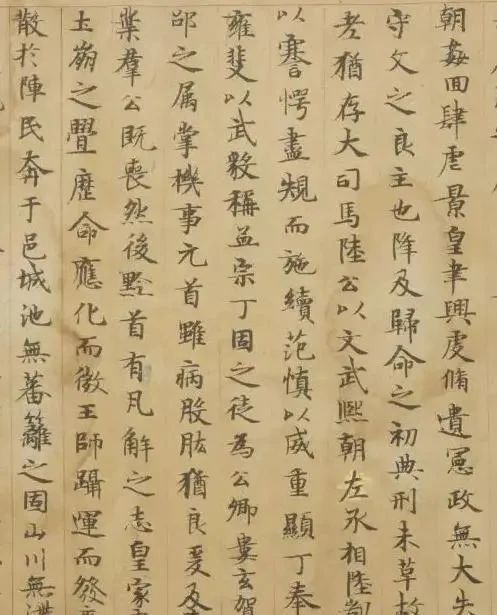 朝姦回肆虐景皇聿興虔脩遺憲政無大失
守文之良主也降及歸命之初典刑未草故
老猶存大司馬陸公以文武熙朝左丞相陸
以謇愕盡規而施續范慎以威重顯丁奉
雍斐以武毅稱孟宗丁固之徒為公卿婁玄賀
邵之属掌機事元首雖病股肱猶良爰及
葉羣公既喪然後黔首有瓦解之志皇家
土崩之舋歷命應化而微王師躡運而發
散於陣民奔于邑城池無蕃籬之固山川無